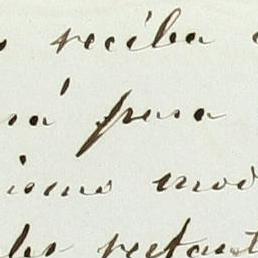 s reciba
rá para
ismo mod
les restant